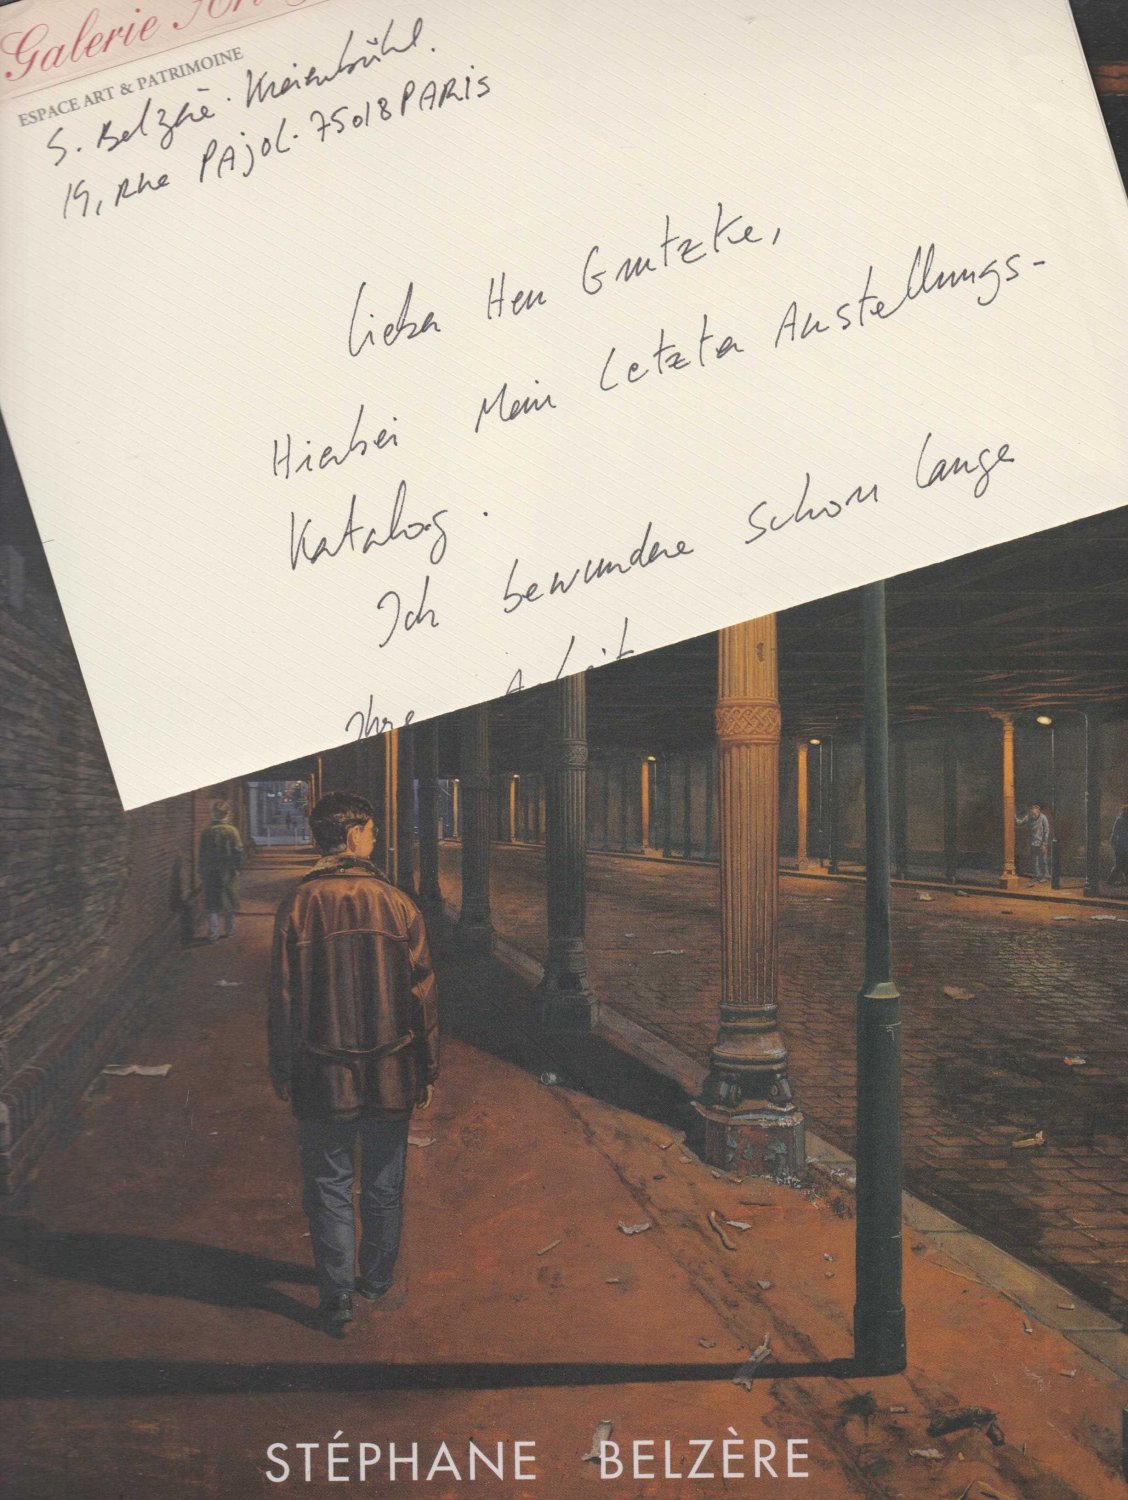 Galerie
ESPACE ART & PATRIMOINE
S. Belzère. Kreienbühl.
19, Rue PAjoL. 75018 PARiS
Lieber Herr Grützke,
Hierbei Mein Letzter Ausstellungs-
Katalog.
Ich bewundere schon lange
Ihre Arbeit
STÉPHANE BELZÈRE